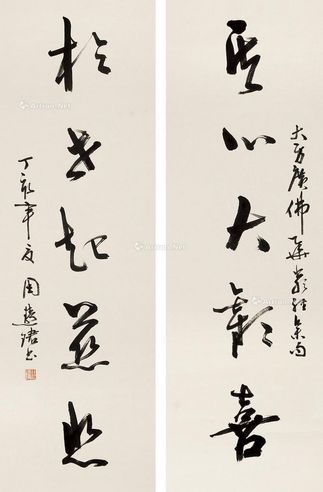 大方廣佛華嚴經集句
其心大歡喜
於世起慈
丁亥年夏 周慧珺書
Artron.Net